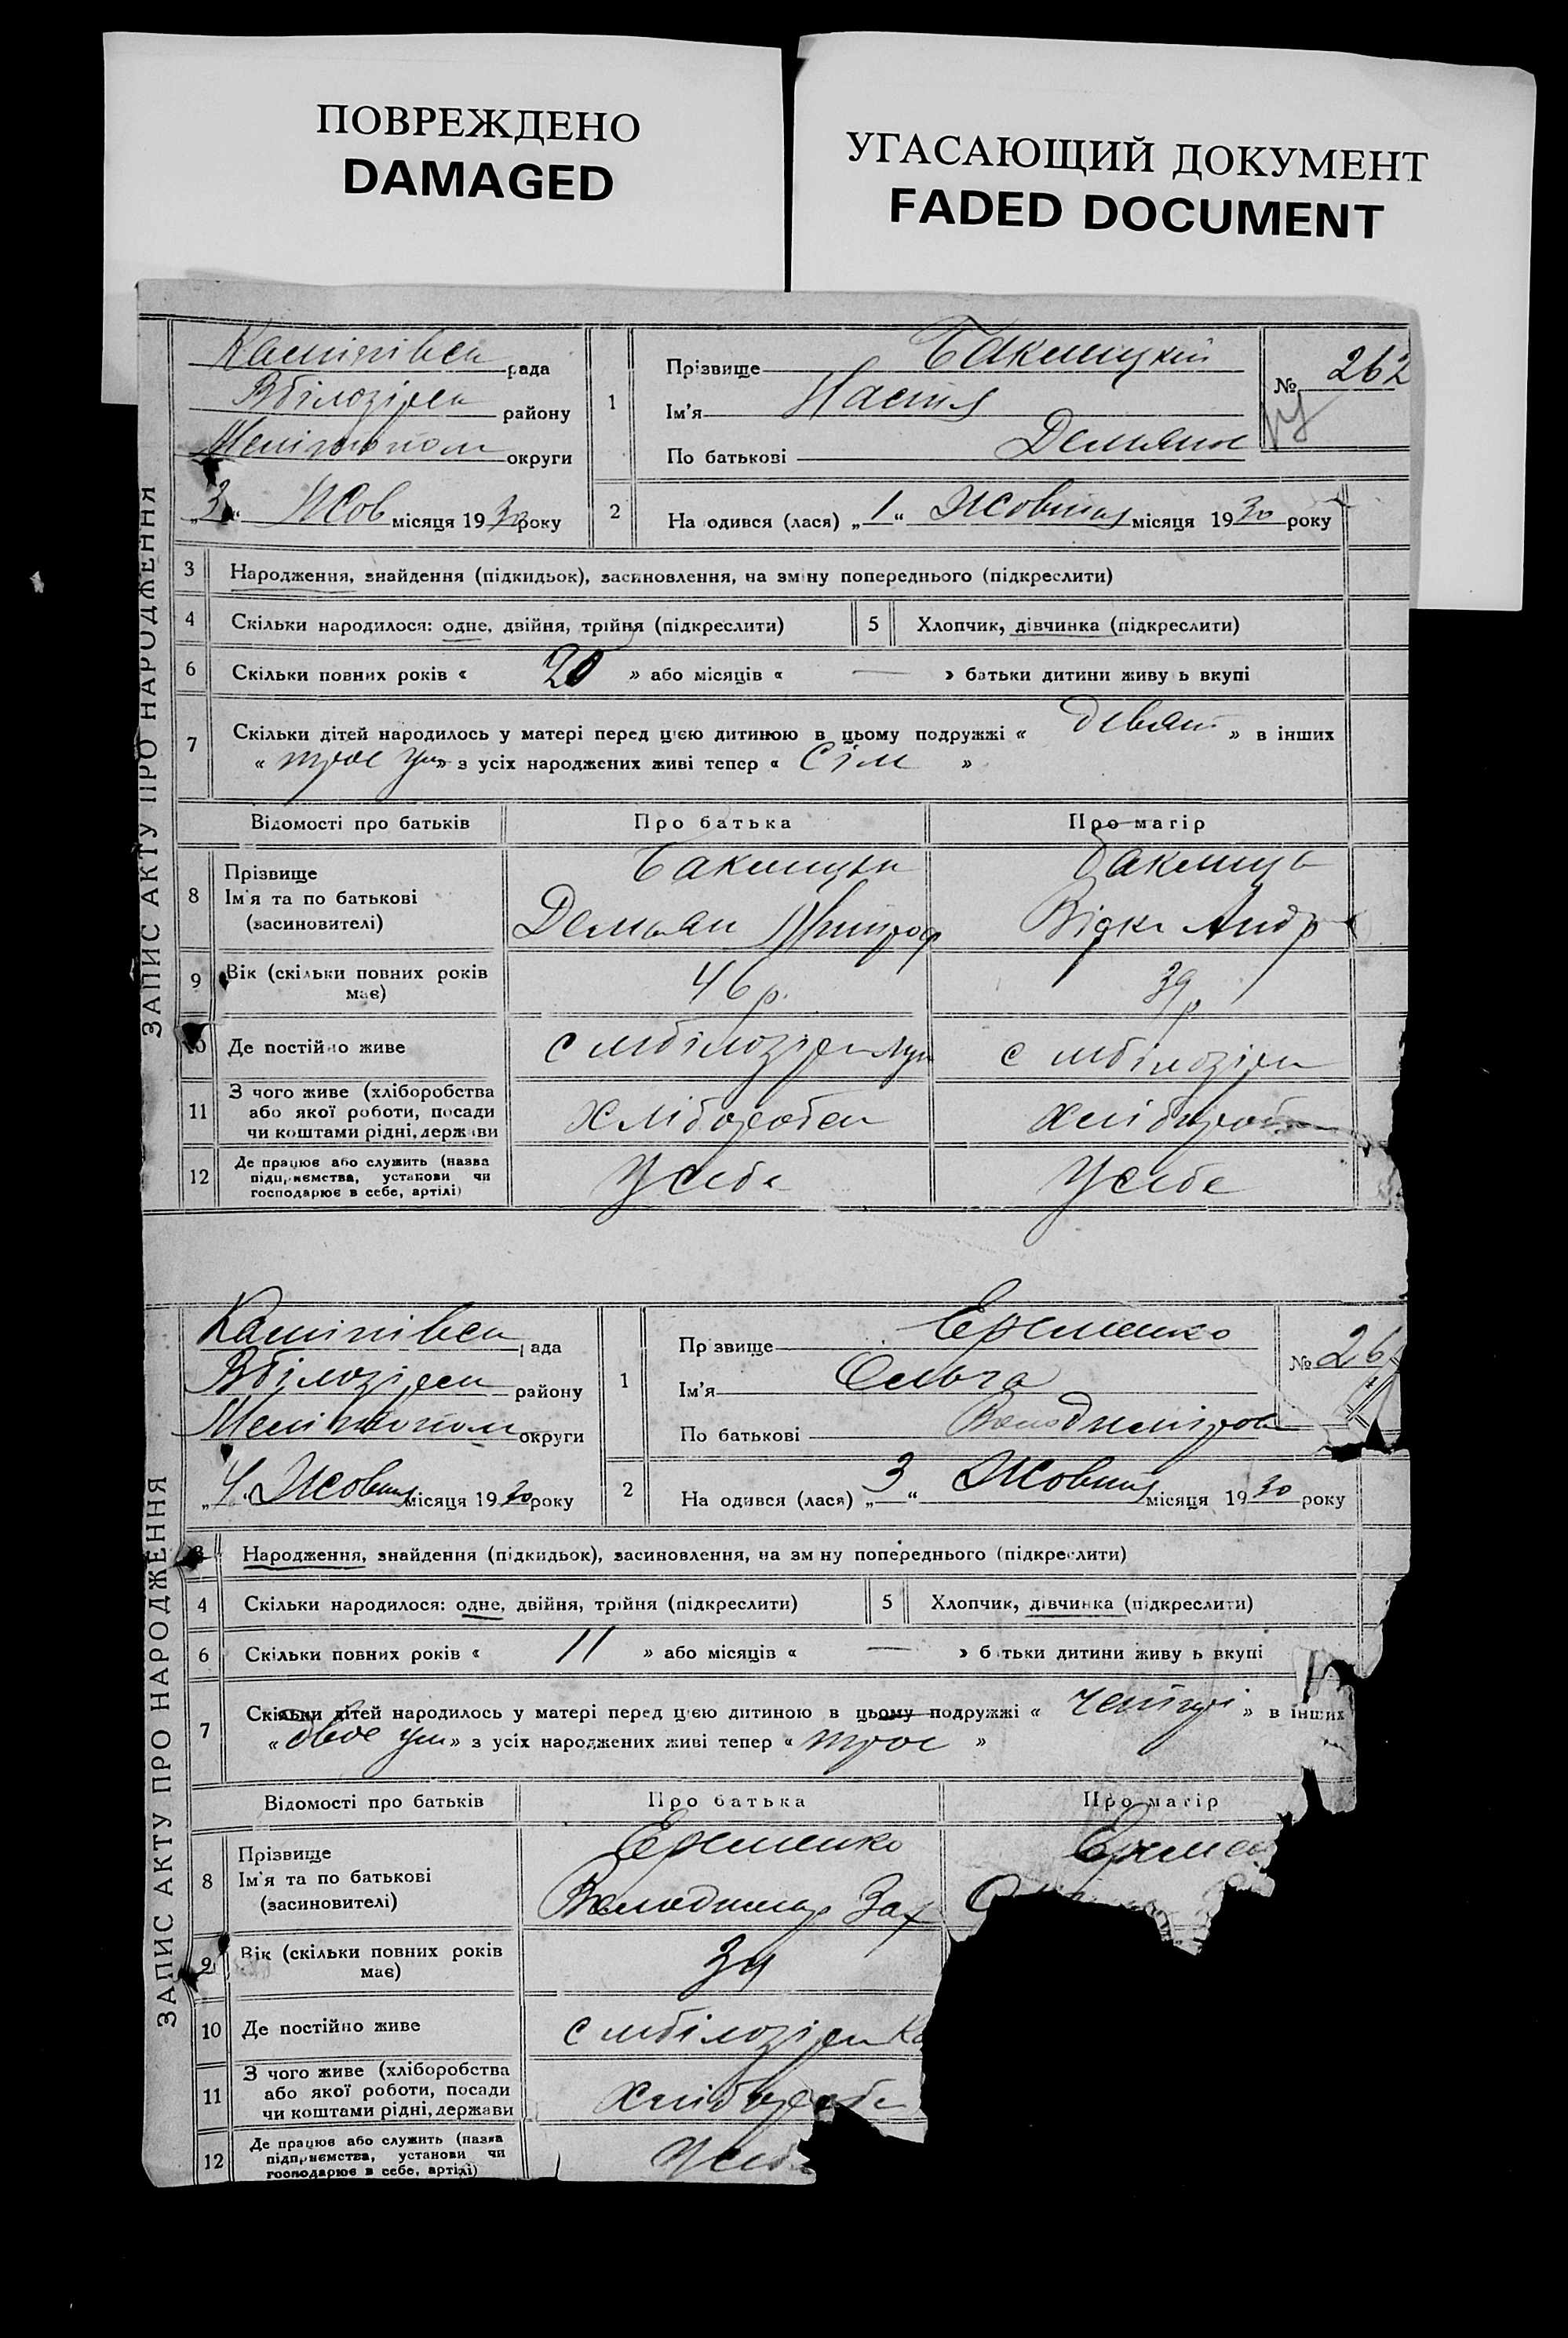 ПОВРЕЖДЕНО
DAMAGED
УГАСАЮЩИЙ ДОКУМЕНТ
FADED DOCUMENT
ЗАПИС АКТУ ПРО НАРОДЖЕННЯ
рада
району
округи
„3“ Жов місяця 1930 року
1
Прізвище
Ім'я Настя
По батькові
№ 262
2
На одився (лася) „1“ Жовтня місяця 1930 року
3 Народження, знайдення (підкидьок), засиновлення, на зміну попереднього (підкреслити)
4 Скільки народилося: одне, двійня, трійня (підкреслити)
5 Хлопчик, дівчинка (підкреслити)
6 Скільки повних років « 20 » або місяців « — » батьки дитини живу ь вкупі
7 Скільки дітей народилось у матері перед цією дитиною в цьому подружжі « девят » в інших
« троє ум » з усіх народжених живі тепер « сім »
Відомості про батьків
Про батька
Про матір
8
Прізвище
Ім'я та по батькові
(засиновителі)
Демьян
Андр
9 Вік (скільки повних років
має)
46 р.
39 р
10 Де постійно живе
с мбілозірка
с мбілозірка
11
З чого живе (хліборобства
або якої роботи, посади
чи коштами рідні, держави
12
Де працює або служить (назва
підприємства, установи чи
господарює в себе, артілі)
У себе
У себе
ЗАПИС АКТУ ПРО НАРОДЖЕННЯ
рада
району
округи
„4“ Жовтня місяця 1930 року
1
Пр звище Еременко
Ім'я Ольга
По батькові Володимиров
№ 26
2
На одився (лася) „3“ Жовтня місяця 1930 року
3 Народження, знайдення (підкидьок), засиновлення, на зм ну попереднього (підкреслити)
4 Скільки народилося: одне, двійня, трійня (підкреслити)
5 Хлопчик, дівчинка (підкреслити)
6 Скільки повних років « 11 » або місяців « — » б тьки дитини живу ь вкупі
7 Скільки дітей народилось у матері перед цією дитиною в цьому подружжі « четири » в інших
« двоє ум » з усіх народжених живі тепер « троє »
Відомості про батьків
Про батька
Про матір
8
Прізвище
Ім'я та по батькові
(засиновителі)
Еременко
Володимир Зах
Еремен
9 Вік (скільки повних років
має)
34
10 Де постійно живе
с мбілозірка Ка
11
З чого живе (хліборобства
або якої роботи, посади
чи коштами рідні, держави
12
Де працює або служить (назва
підприємства, установи чи
господарює в себе, артілі)
У себе